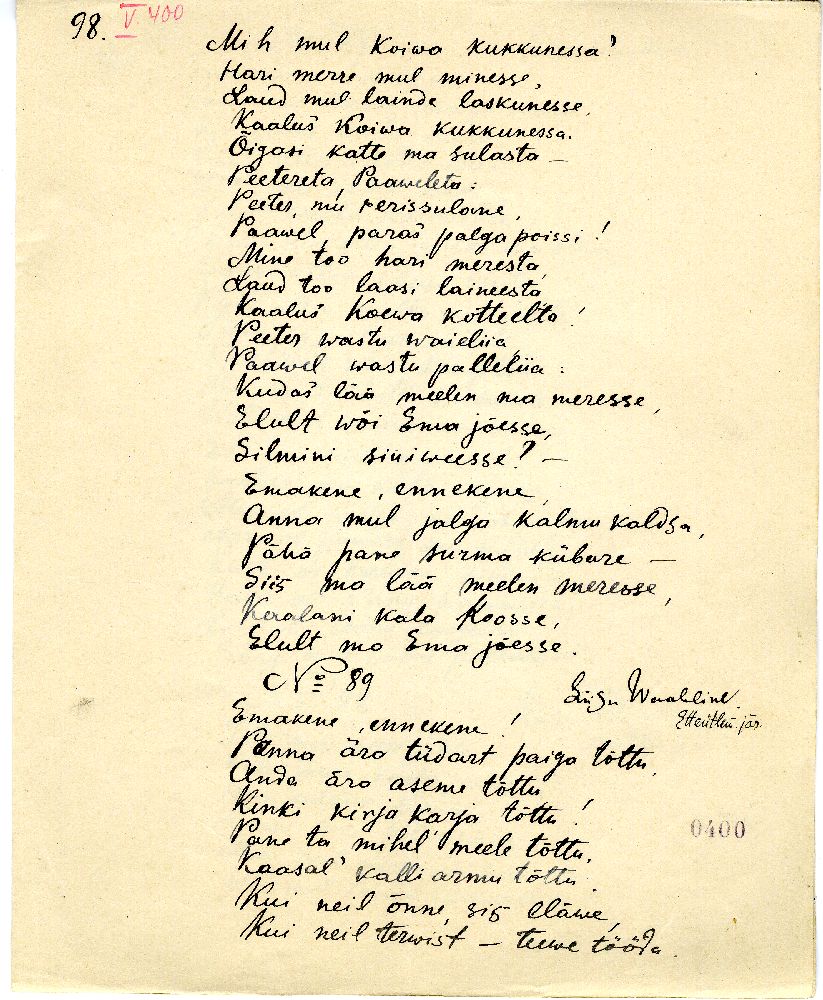 98. V. 400
Mih mul Koiwa kukkunessa?
Hari merre mul minesse,
Laud mul lainde laskunesse,
Kaaluš Koiwa kukkunessa.
Õigasi katte ma sulasta —
Peetereta, Paaweleta:
Peeter, mu perissulane,
Paawel, paraš palgapoissi!
Mine too hari meresta,
Laud too laasi laineesta,
Kaaluš Koewa kotteelta!
Peeter wastu waieliia,
Paawel wastu palleliia:
Kudaš lää meelen ma meresse,
Elult wõi Ema jõesse,
Silmini siniweesse? —
Emakene, ennekene,
Anna mul jalga kalmu kaldsa,
Pähä pane surma kübare —
Siis ma lää meelen meresse,
Kaalani kala Koosse,
Elult ma Ema jõesse.
No 89
Emakene, ennekene!
Panna ära tüdart paiga tõttu,
Anda ära aseme tõttu
Kinki kirja karja tõttu!
Pane ta mihel' meele tõttu,
Kaasal' kalli armu tõttu.
Kui neil õnne, sis eläwe,
Kui neil terwist — teewe tööda.
0400